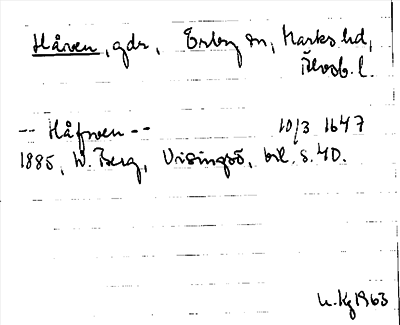 Håven, gdr, Örby sn, Marks hd,
Älvsb. l.
-- Håfwen -- 10/3 1647
1885, W. Berg, Visingsö, bil. s. 40.
1963